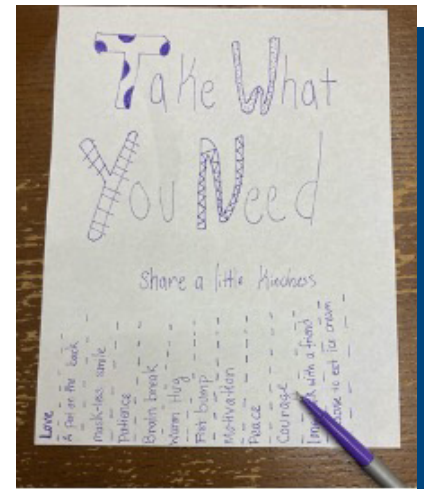 Take What
You Need
Share a little Kindness
Love
A Pat on the back
Mask-less smile
Patience
Brain break
Warm Hug
Fist bump
Motivation
Peace
Courage
with a friend
to eat ice cream